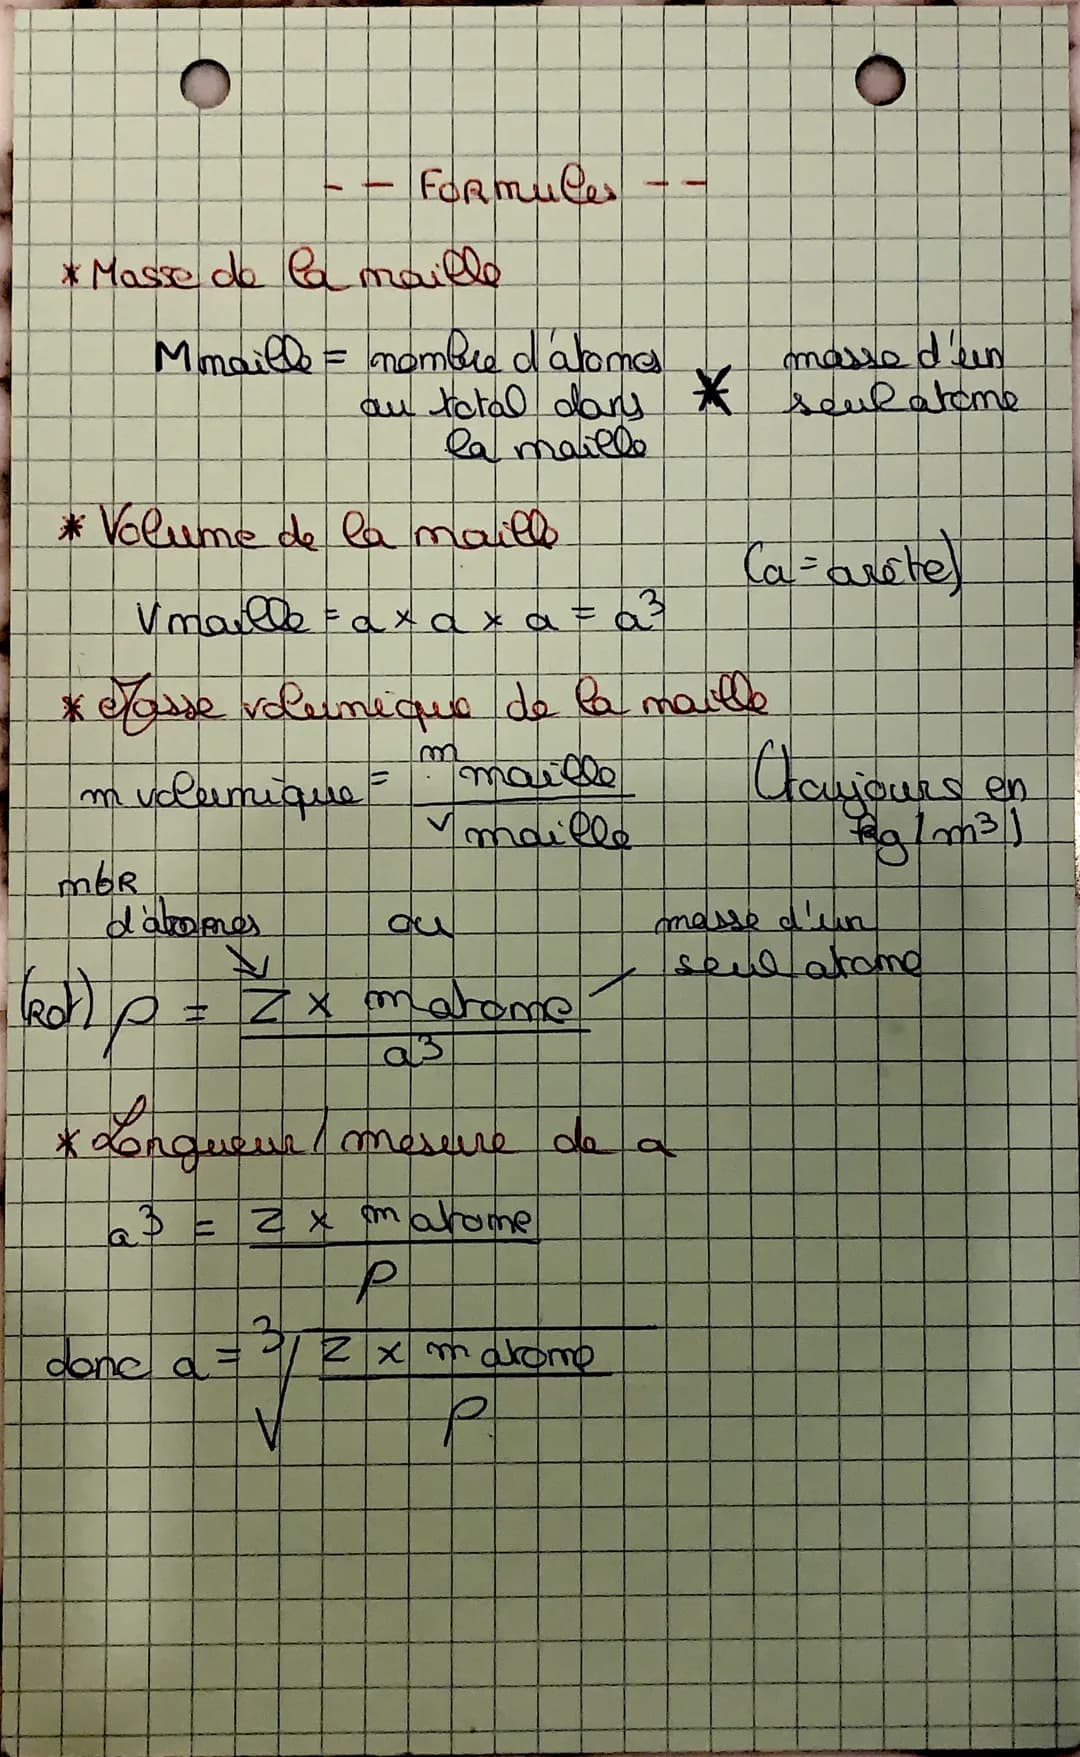 -- Formules --
* Masse de la maille
Mmaille = nombre d'atomes * masse d'un
au total dans seul atome
la maille
* Volume de la maille
(a = arête)
Vmaille = a x a x a = a³
* Masse volumique de la maille
m volumique = m maille / V maille (toujours en
kg/m³)
nbR
d'atomes ou masse d'un
seul atome
(Rot) ρ = Z x m atome
a³
* Longueur / mesure de a
a³ = Z x m atome
ρ
donc a = ³√ Z x m atome
ρ